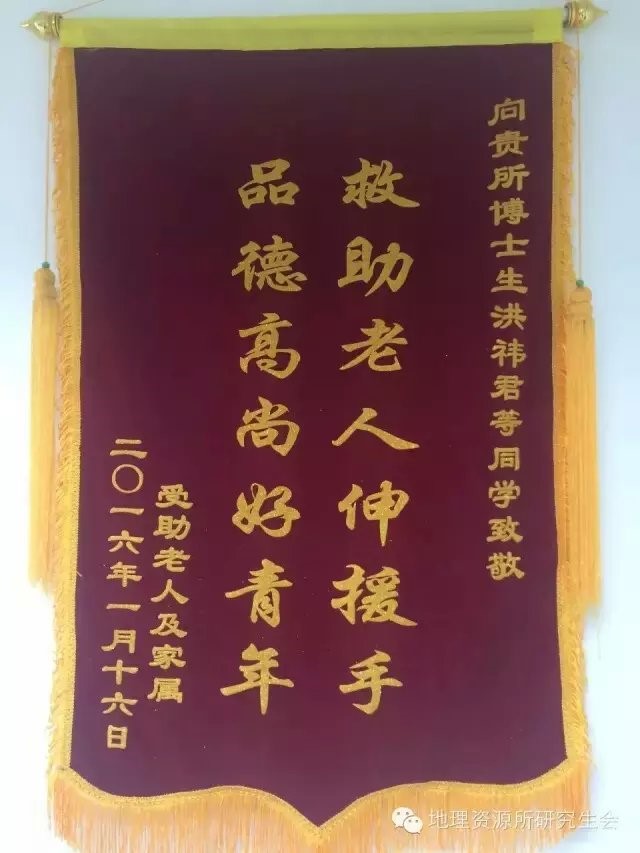 向贵所博士生洪祎君等同学致敬
救助老人伸援手
品德高尚好青年
受助老人及家属
二〇一六年一月十六日
地理资源所研究生会